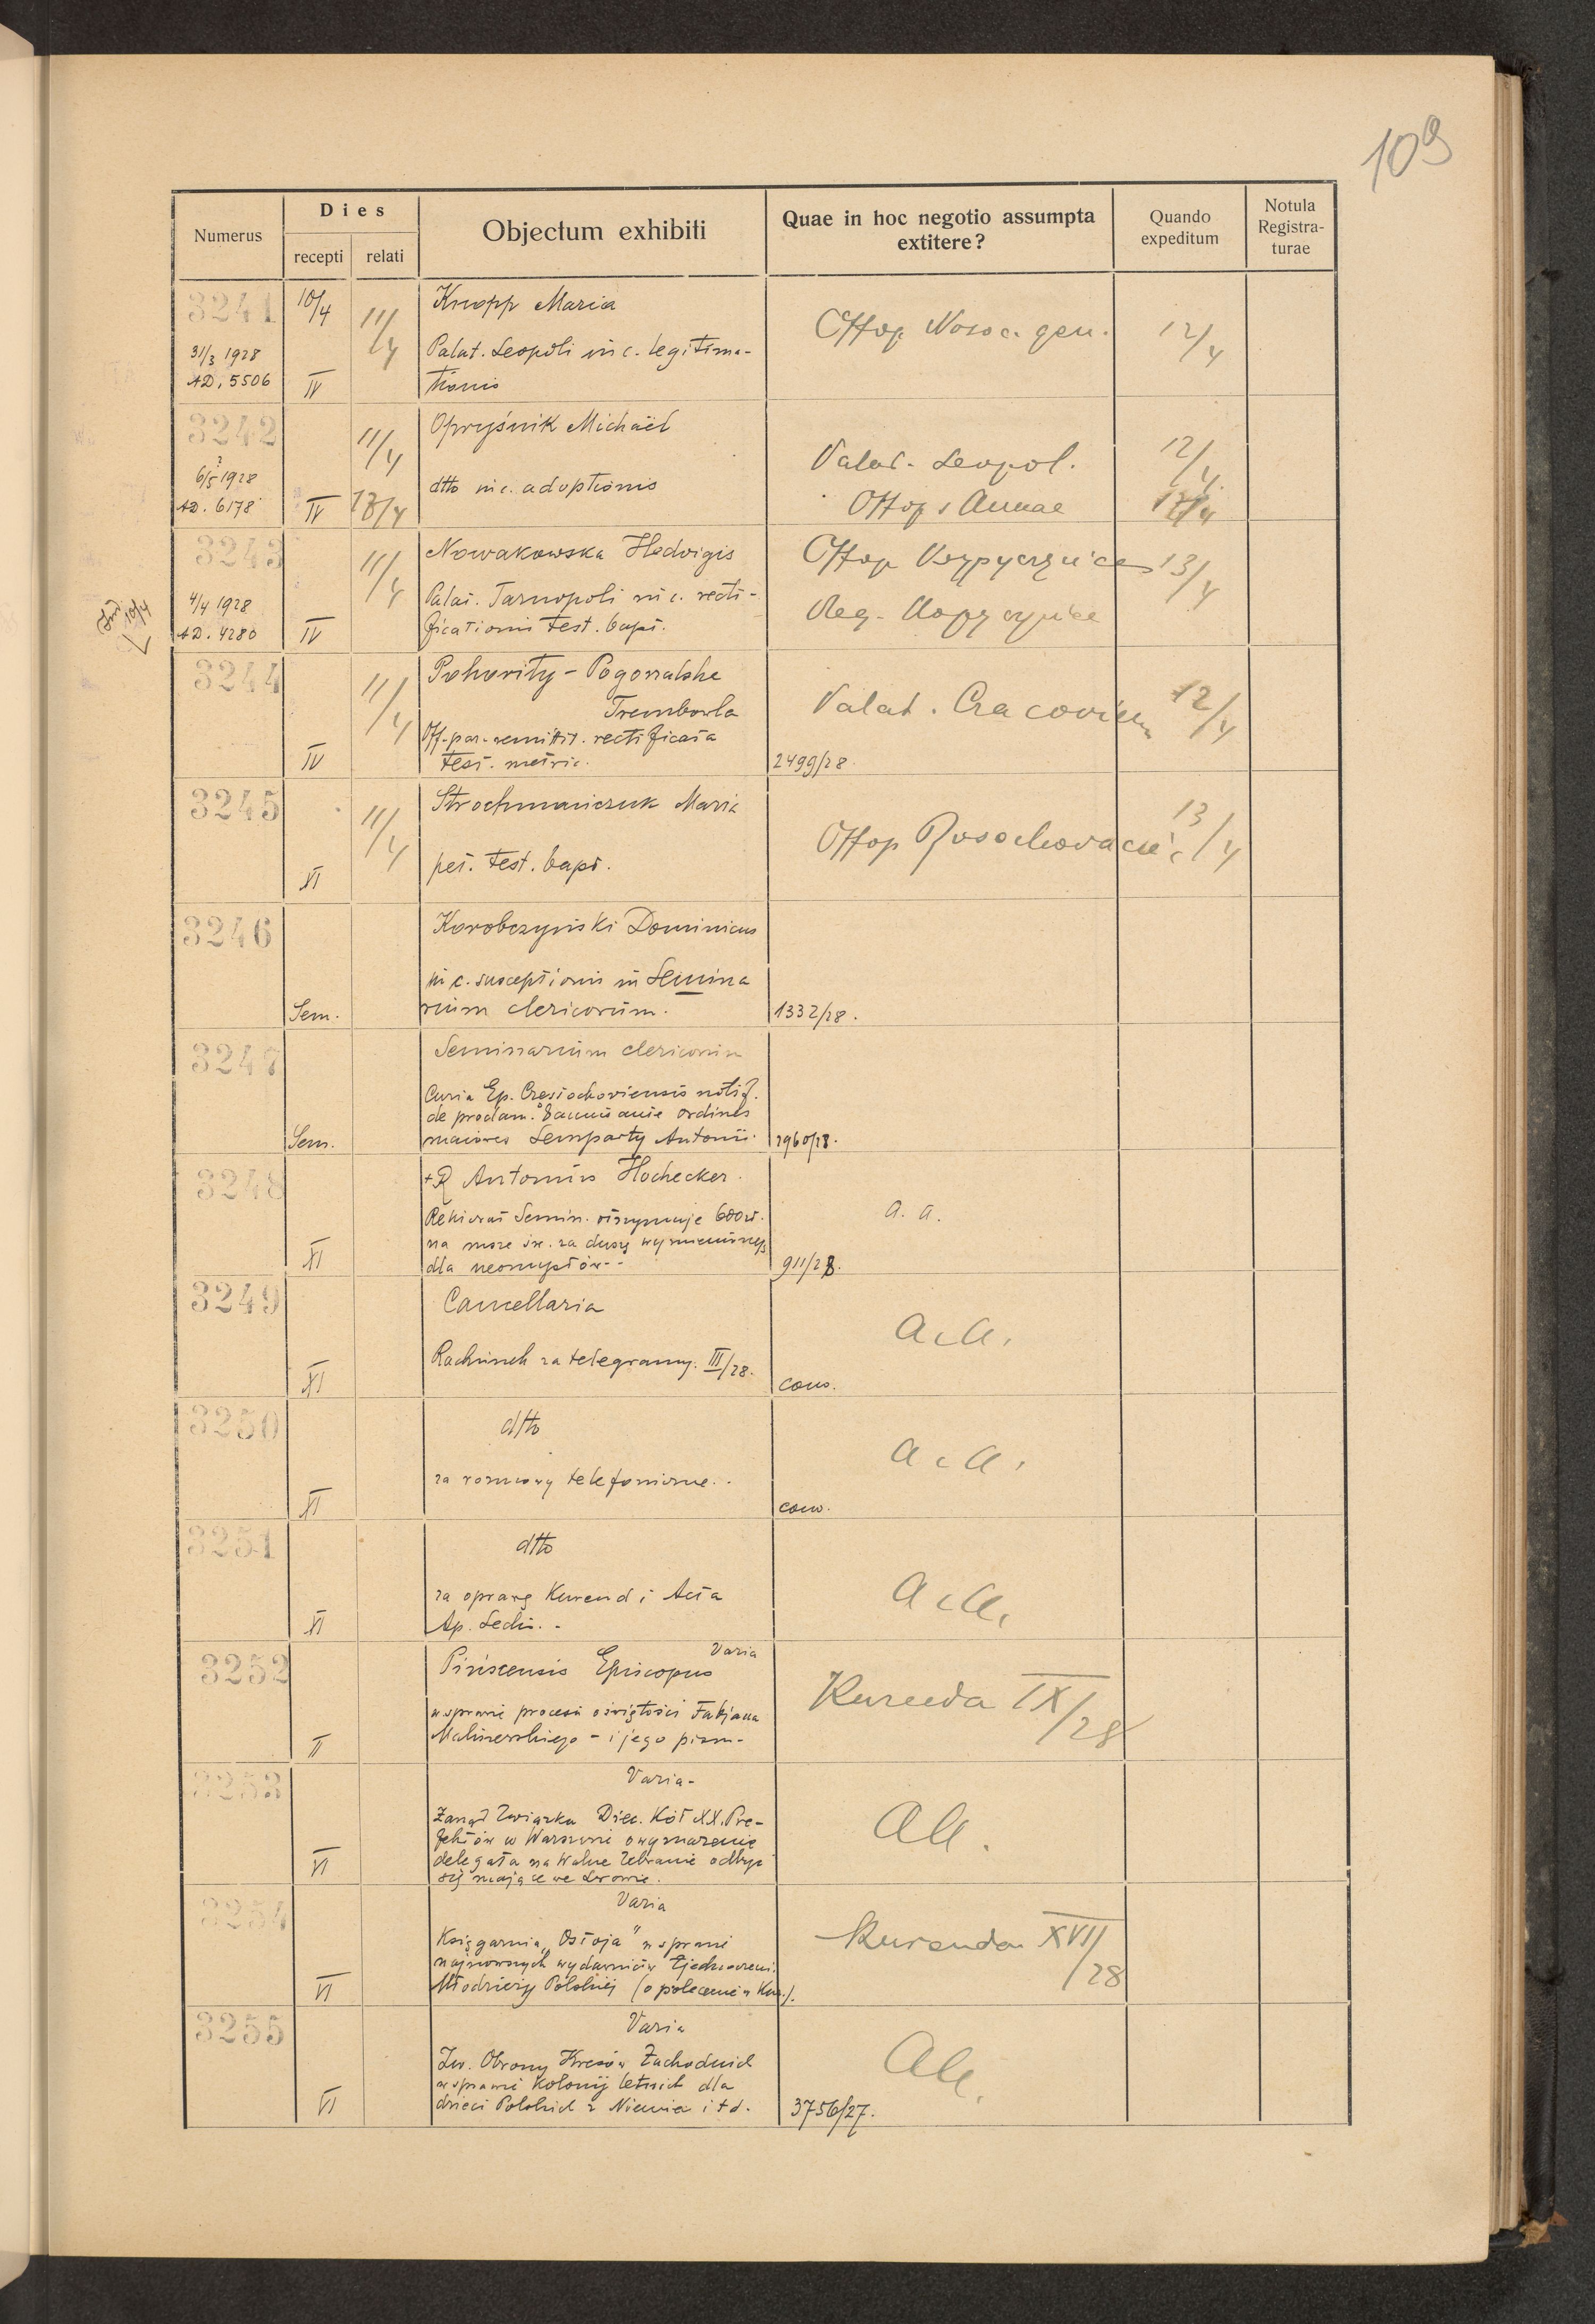 109
Numerus
Dies
recepti
relati
Objectum exhibiti
Quae in hoc negotio assumpta extitere?
Quando expeditum
Notula Registra-turae
3241
31/3 1928
AD. 5506
10/4
IV
11/4
Knopp Maria
Palat. Leopoli in c. legitima-
tionis
Offop Nosoc. gen.
12/4
3242
6/5 1928
AD. 6178
IV
11/4
Opryśnik Michaël
dtto in c. adoptionis
Palat. Leopol.
Offop s Annae
12/4
3243
4/4 1928
AD. 4280
10/4
IV
11/4
Nowakowska Hedvigis
Palat. Tarnopoli in c. recti-
ficationis test. bapt.
Offop
13/4
3244
IV
11/4
Pohority - Pogorralske
Trembowla
Off. par. remittit. rectificata
test. metric.
2499/28
Palat. Cracovien
12/4
3245
XI
11/4
Strochmaniczuk Maria
pet. test. bapt.
Offop Rosochovaciec
13/4
3246
Sem.
Korobczyński Dominicus
in c. susceptionis in Semina
rium clericorum.
1332/28.
3247
Sem.
Seminarium clericorum
Curia Ep. Czestochoviensis notif.
de proclam. ordines
maiores Lemparty Antonii.
2960/28.
3248
XI
+R Antonius Hochecker.
Rektorat Semin. otrzymuje 600 zł.
na msze św. za duszę wymienionej
dla neomystów --
911/28.
a. a.
3249
XI
Cancellaria
Rachunek za telegramy. III/28.
conv.
a. a.
3250
XI
dtto
za rozmowy telefoniczne. -
conv.
a. a.
3251
XI
dtto
za oprawę Kurend i Acta
Ap. Sedis. -
a. a.
3252
II
Varia
Pinscensis Episcopus
w sprawie procesu o świętości Fabjana
Malinowskiego - i jego pism-
Kurenda IX/28
3253
VI
Varia-
Zarząd Związku Diec. Kół XX. Pre-
fektów w Warszawie o wyznaczenie
delegata na Walne Zebranie odbyć
się mające we Lwowie.
AA.
3254
VI
Varia
Księgarnia „Ostoja" w sprawie
najnowszych wydawnictw Zjednoczeni.
Młodzieży Polskiej (o polecenie w Kur.).
Kurenda XVII/28
3255
VI
Varia
Zw. Obrony Kresów Zachodnich
w sprawie kolonij letnich dla
dzieci Polskich z Niemiec i t d.
3756/27.
AA.